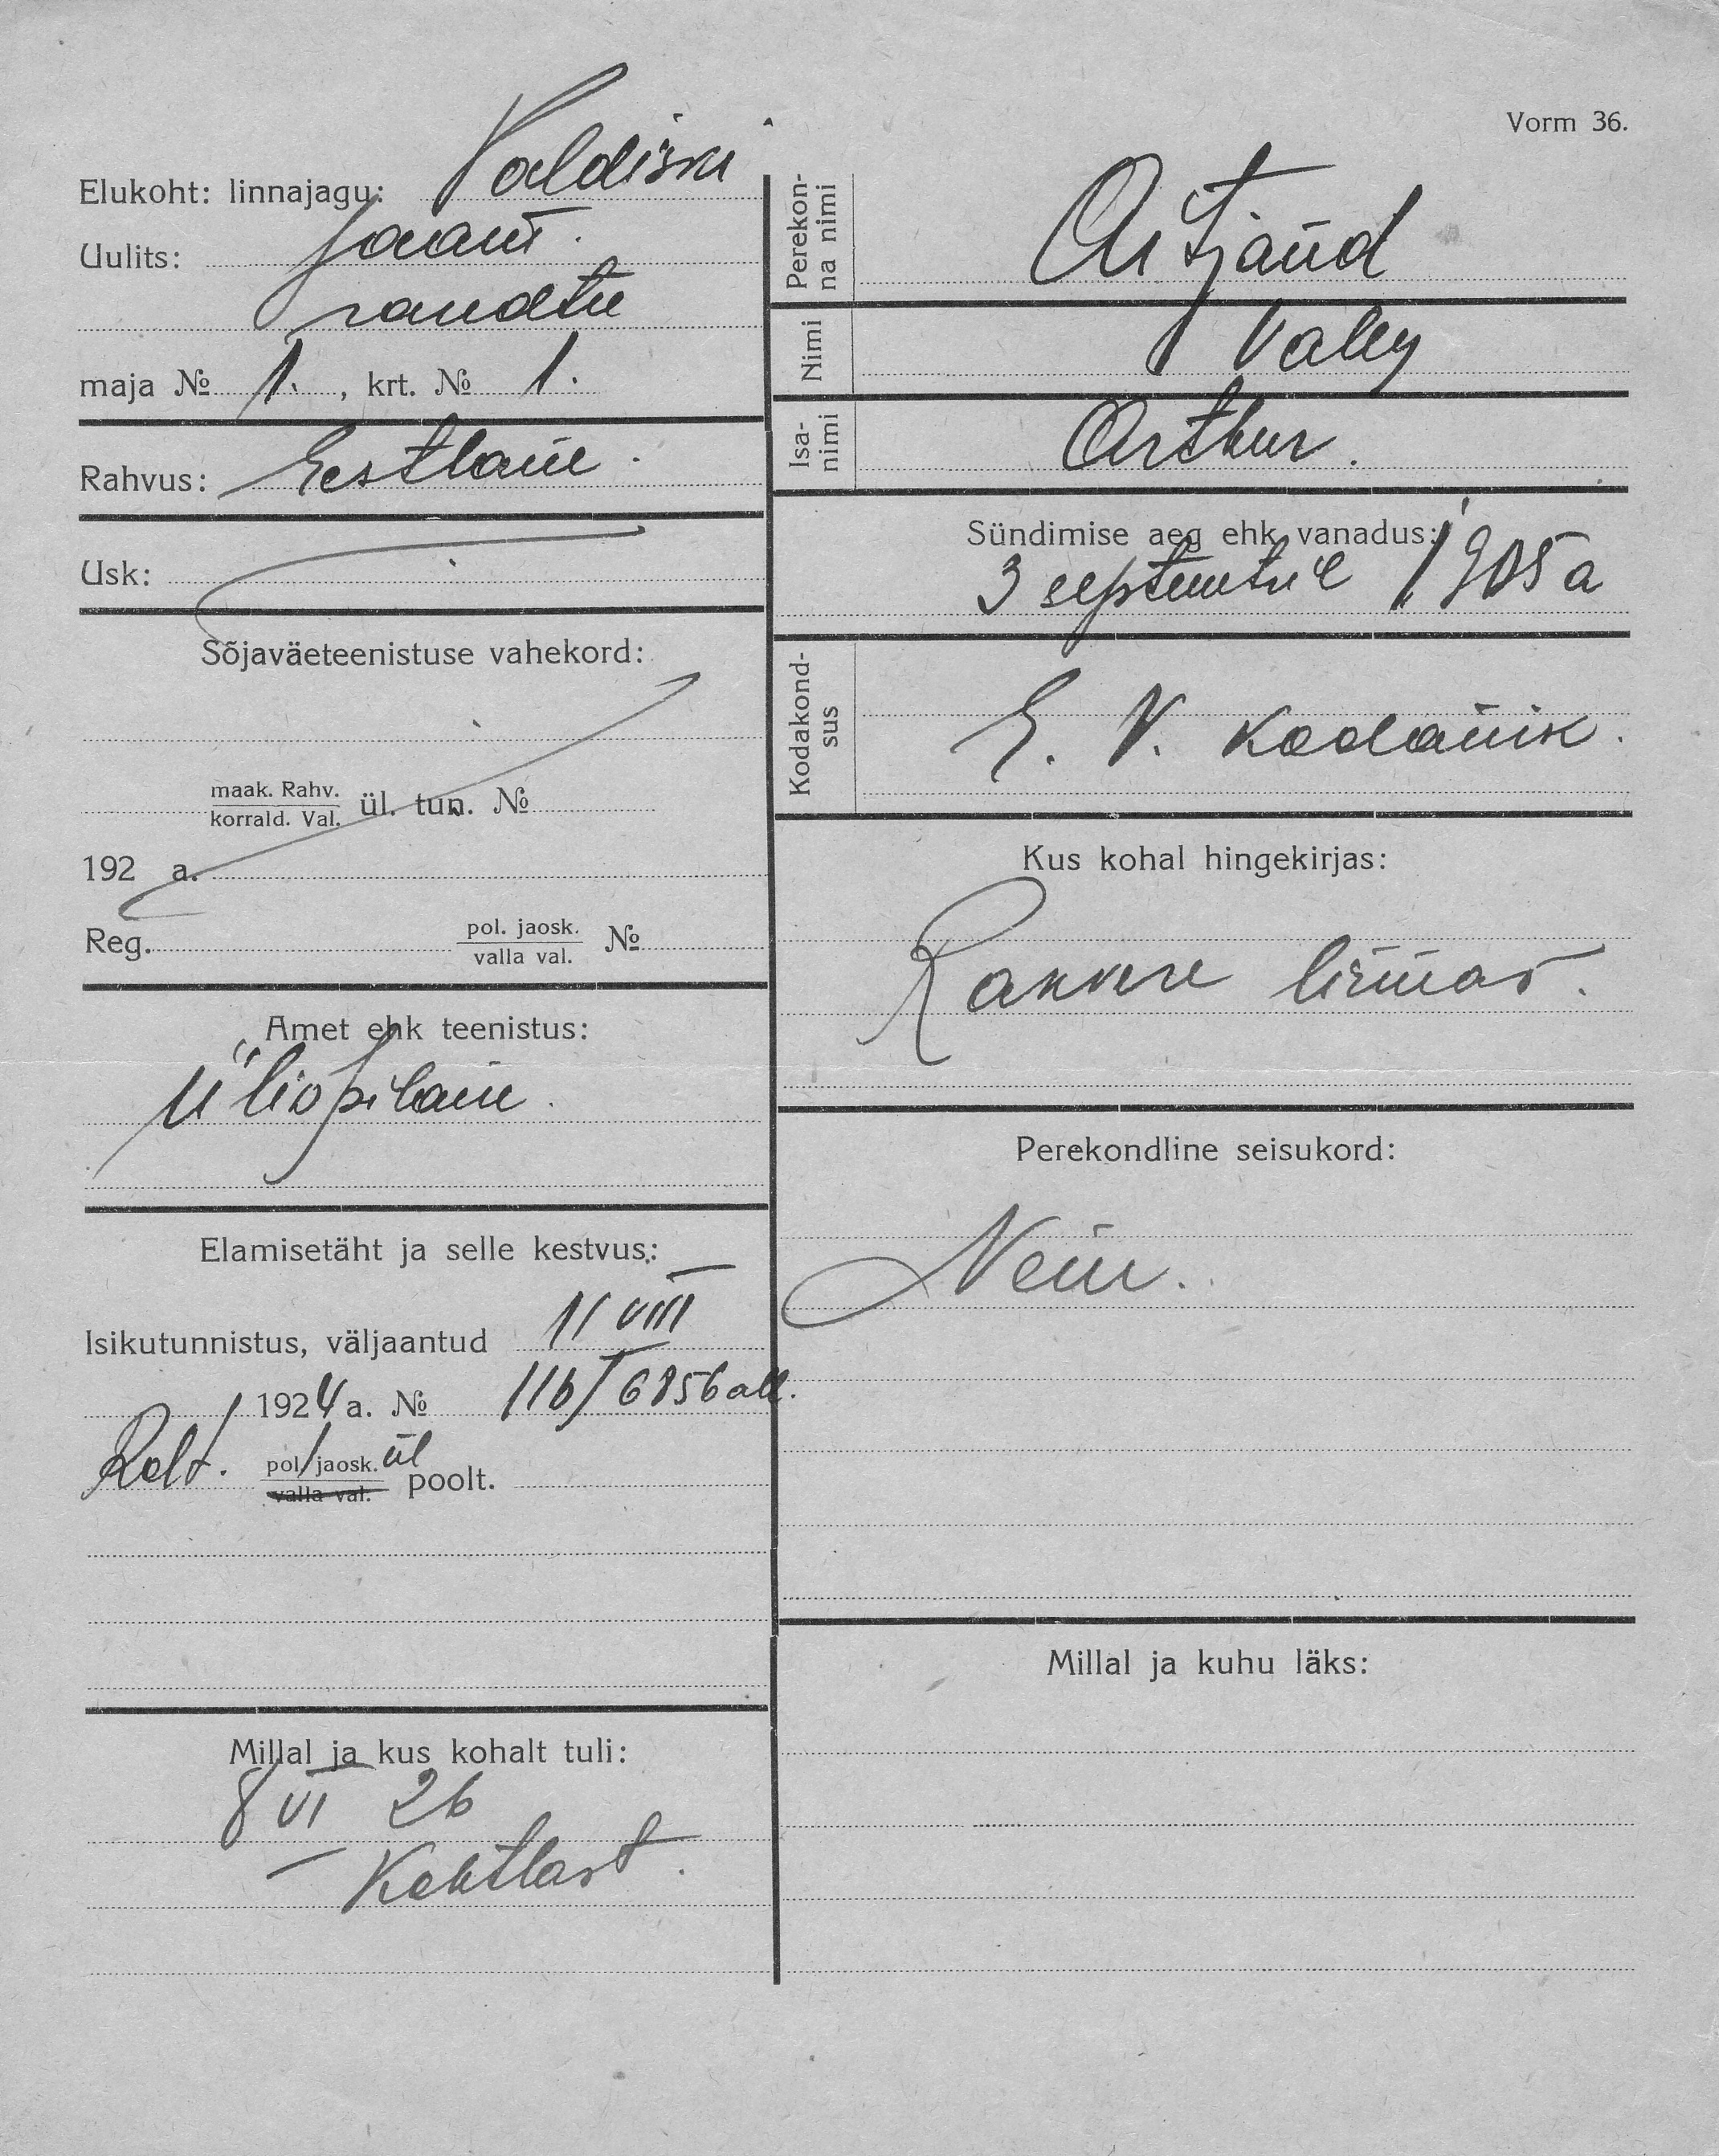 Vorm 36.
Elukoht: linnajagu: Paldiski
Uulits: Jaam.
raudtee
maja № 1., krt. № 1.
Rahvus: Eestlane.
Usk:
Sõjaväeteenistuse vahekord:
maak. Rahv.
korrald. Val. ül. tun. №
192 a.
Reg. pol. jaosk.
valla val. №
Amet ehk teenistus:
Üliõpilane.
Elamisetäht ja selle kestvus:
Isikutunnistus, väljaantud 11 VIII
1924 a. № 116/6856 all.
pol. jaosk. ül
valla val. poolt.
Millal ja kus kohalt tuli:
8 VI 26
Kohtlast.
Perekon-
na nimi
Nimi Valley
Isa-
nimi Arthur.
Sündimise aeg ehk vanadus:
3 septembril 1905 a
Kodakond-
sus E. V. kodanik.
Kus kohal hingekirjas:
Rakvere linnas.
Perekondline seisukord:
Neiu.
Millal ja kuhu läks: